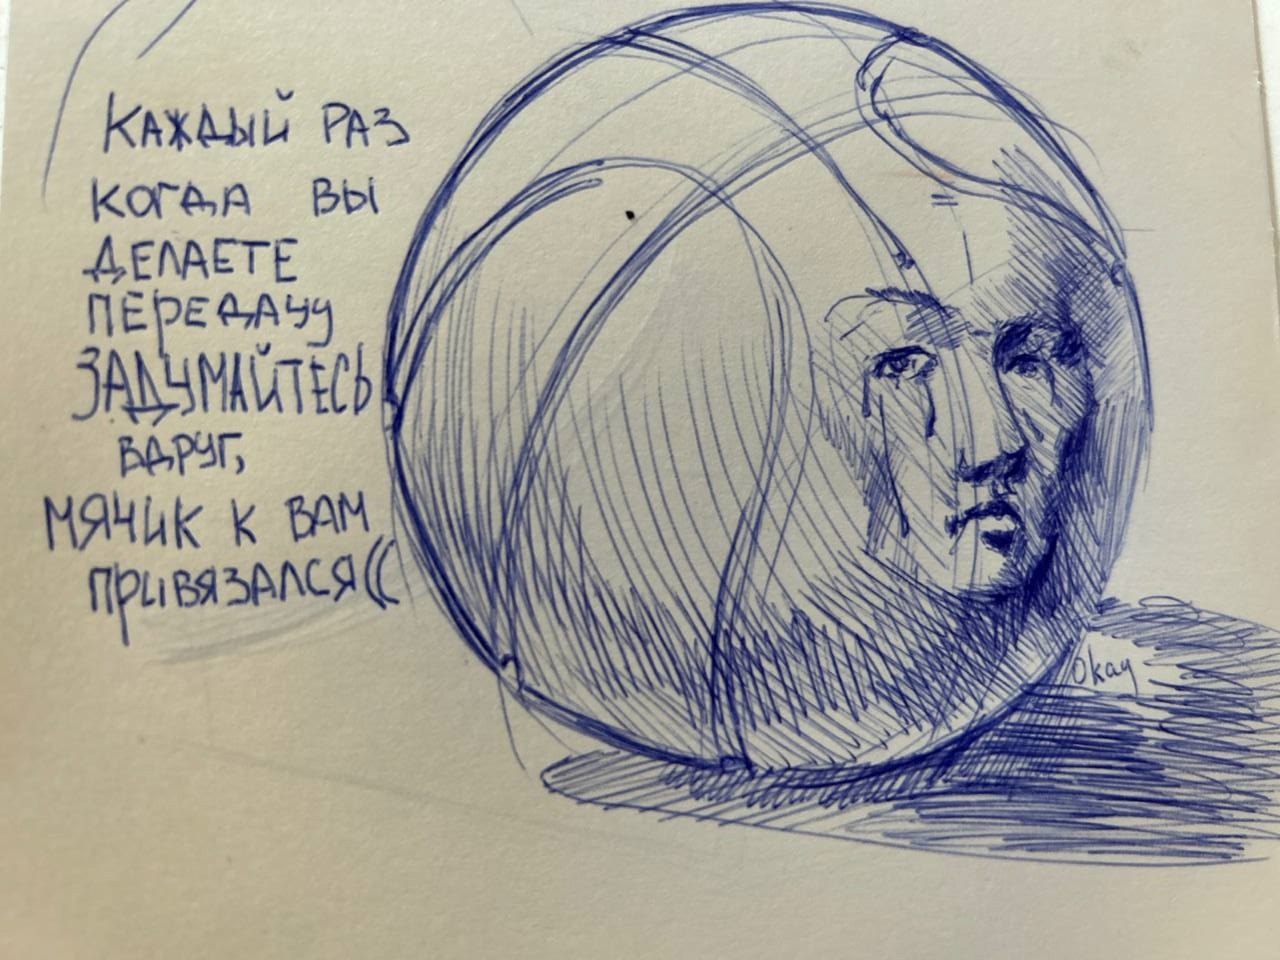 Каждый раз
когда вы
делаете
передачу
задумайтесь
вдруг,
мячик к вам
привязался((
Okay